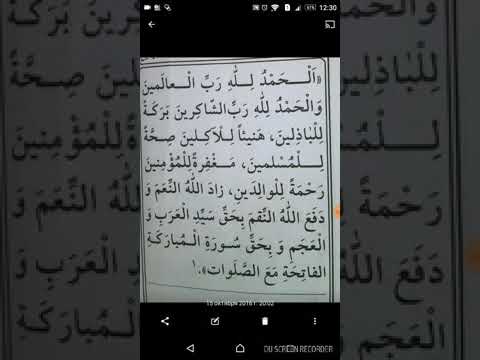 57% 12:30
«اَلْـحَمْدُ لِلّٰهِ رَبِّ الْـعالَمينَ
وَالْحَمْدُ لِلّٰهِ رَبِّ الشّاكِرينَ بَرَكَةً
لِلْباذِلينَ، هَنيئاً لِلْآكِلينَ صِحَّةً
لِلْـمُسْلمينَ، مَـغْفِرةً لِلْمُؤْمِنينَ
رَحْمَةً لِلْوالِدَينِ، زادَ اللّٰهُ النِّعَمَ وَ
دَفَعَ اللّٰهُ النِّقَمَ بِحَقِّ سَيِّدِ الْعَرَبِ وَ
الْعَجَمِ وَ بِحَقِّ سُـورَةِ الْـمُبارَكَةِ
الفاتِحَةِ مَعَ الصَّلَواتِ».١
15 октября 2016 г. 20:02
DU SCREEN RECORDER